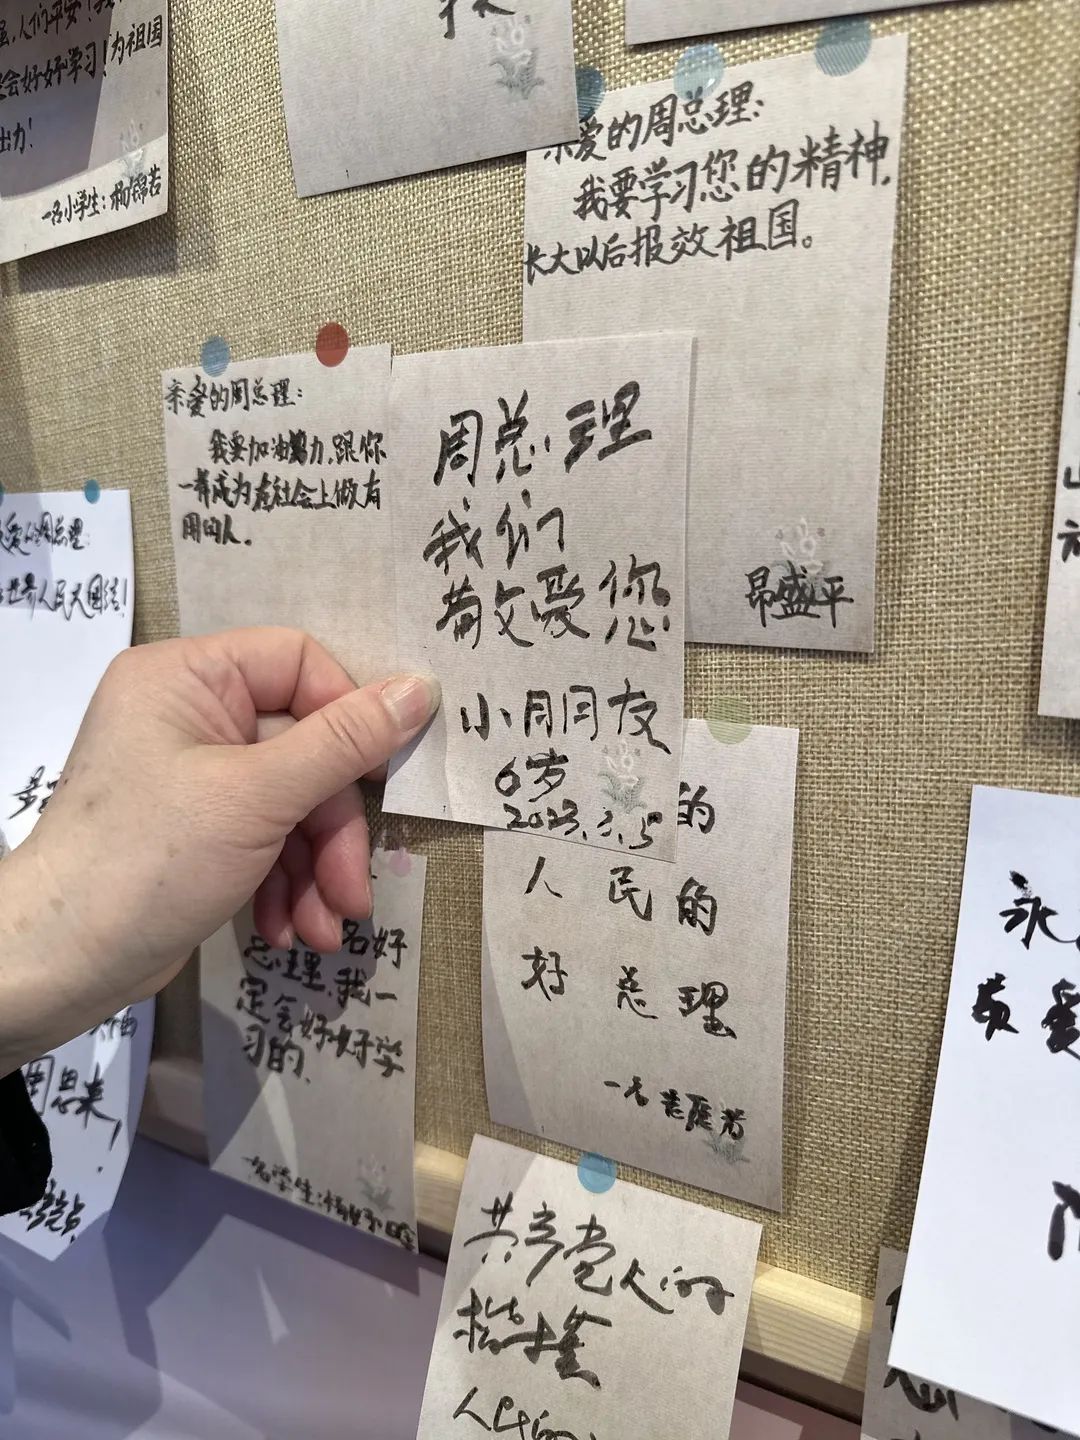 人们平安！我
会好好学习！为祖国
出力！
一名小学生：杨锦若
亲爱的周总理：
我要学习您的精神，
长大以后报效祖国。
昂盛平
亲爱的周总理：
我要加油努力，跟你
一样成为在社会上做有
用的人。
周总理
我们
敬爱您
小朋友
6岁
2023.3.5
周总理：
世界人民大团结！
名好
总理，我一
定会好好学
习的.
的
人 民 的
好 总 理
一名
共产党人的
楷模
人民的
周恩来
永
最爱